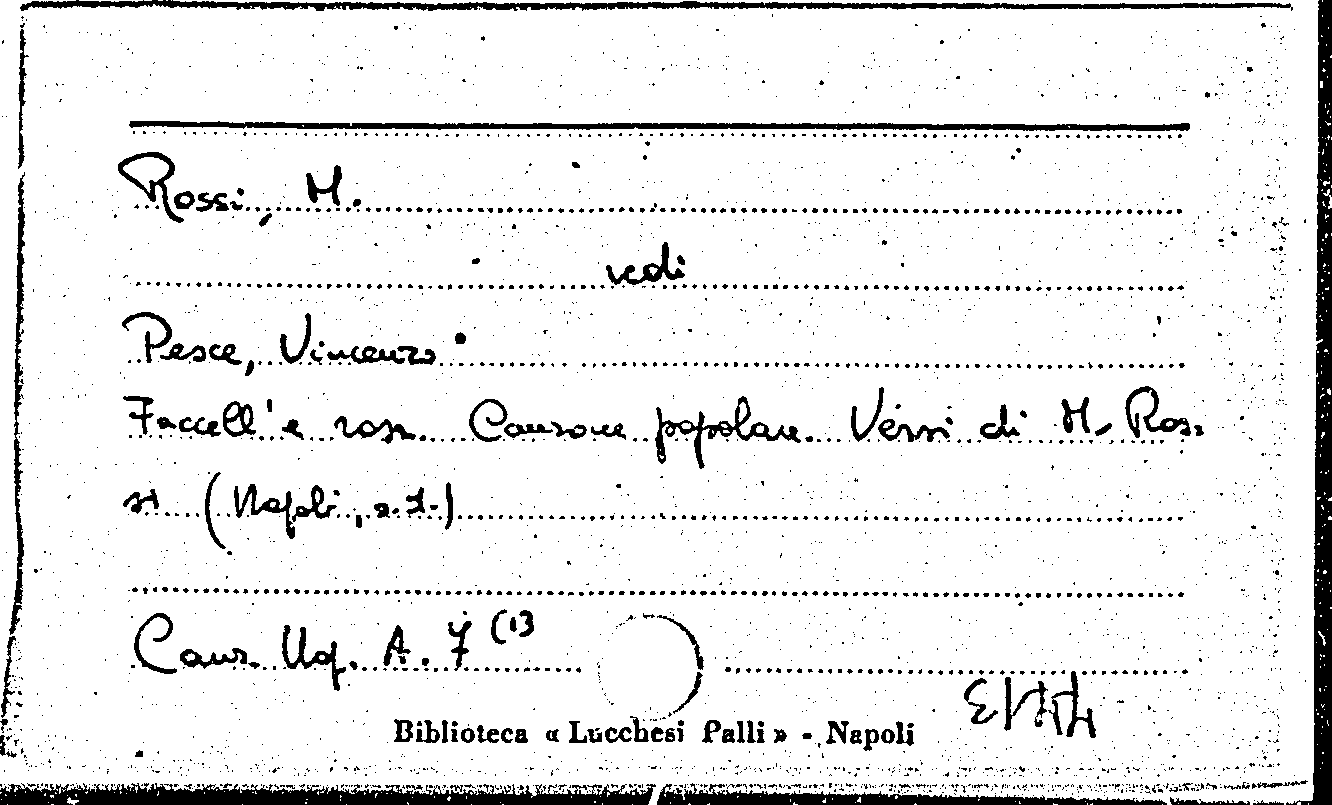 Rossi, M.
vedi
Pesce, Vincenzo
Faccell'e rosa. Canzone popolare. Versi di M. Ros-
si (Napoli, s.t.)
Canz. Nap. A. 7 (13
Biblioteca « Lucchesi Palli » - Napoli